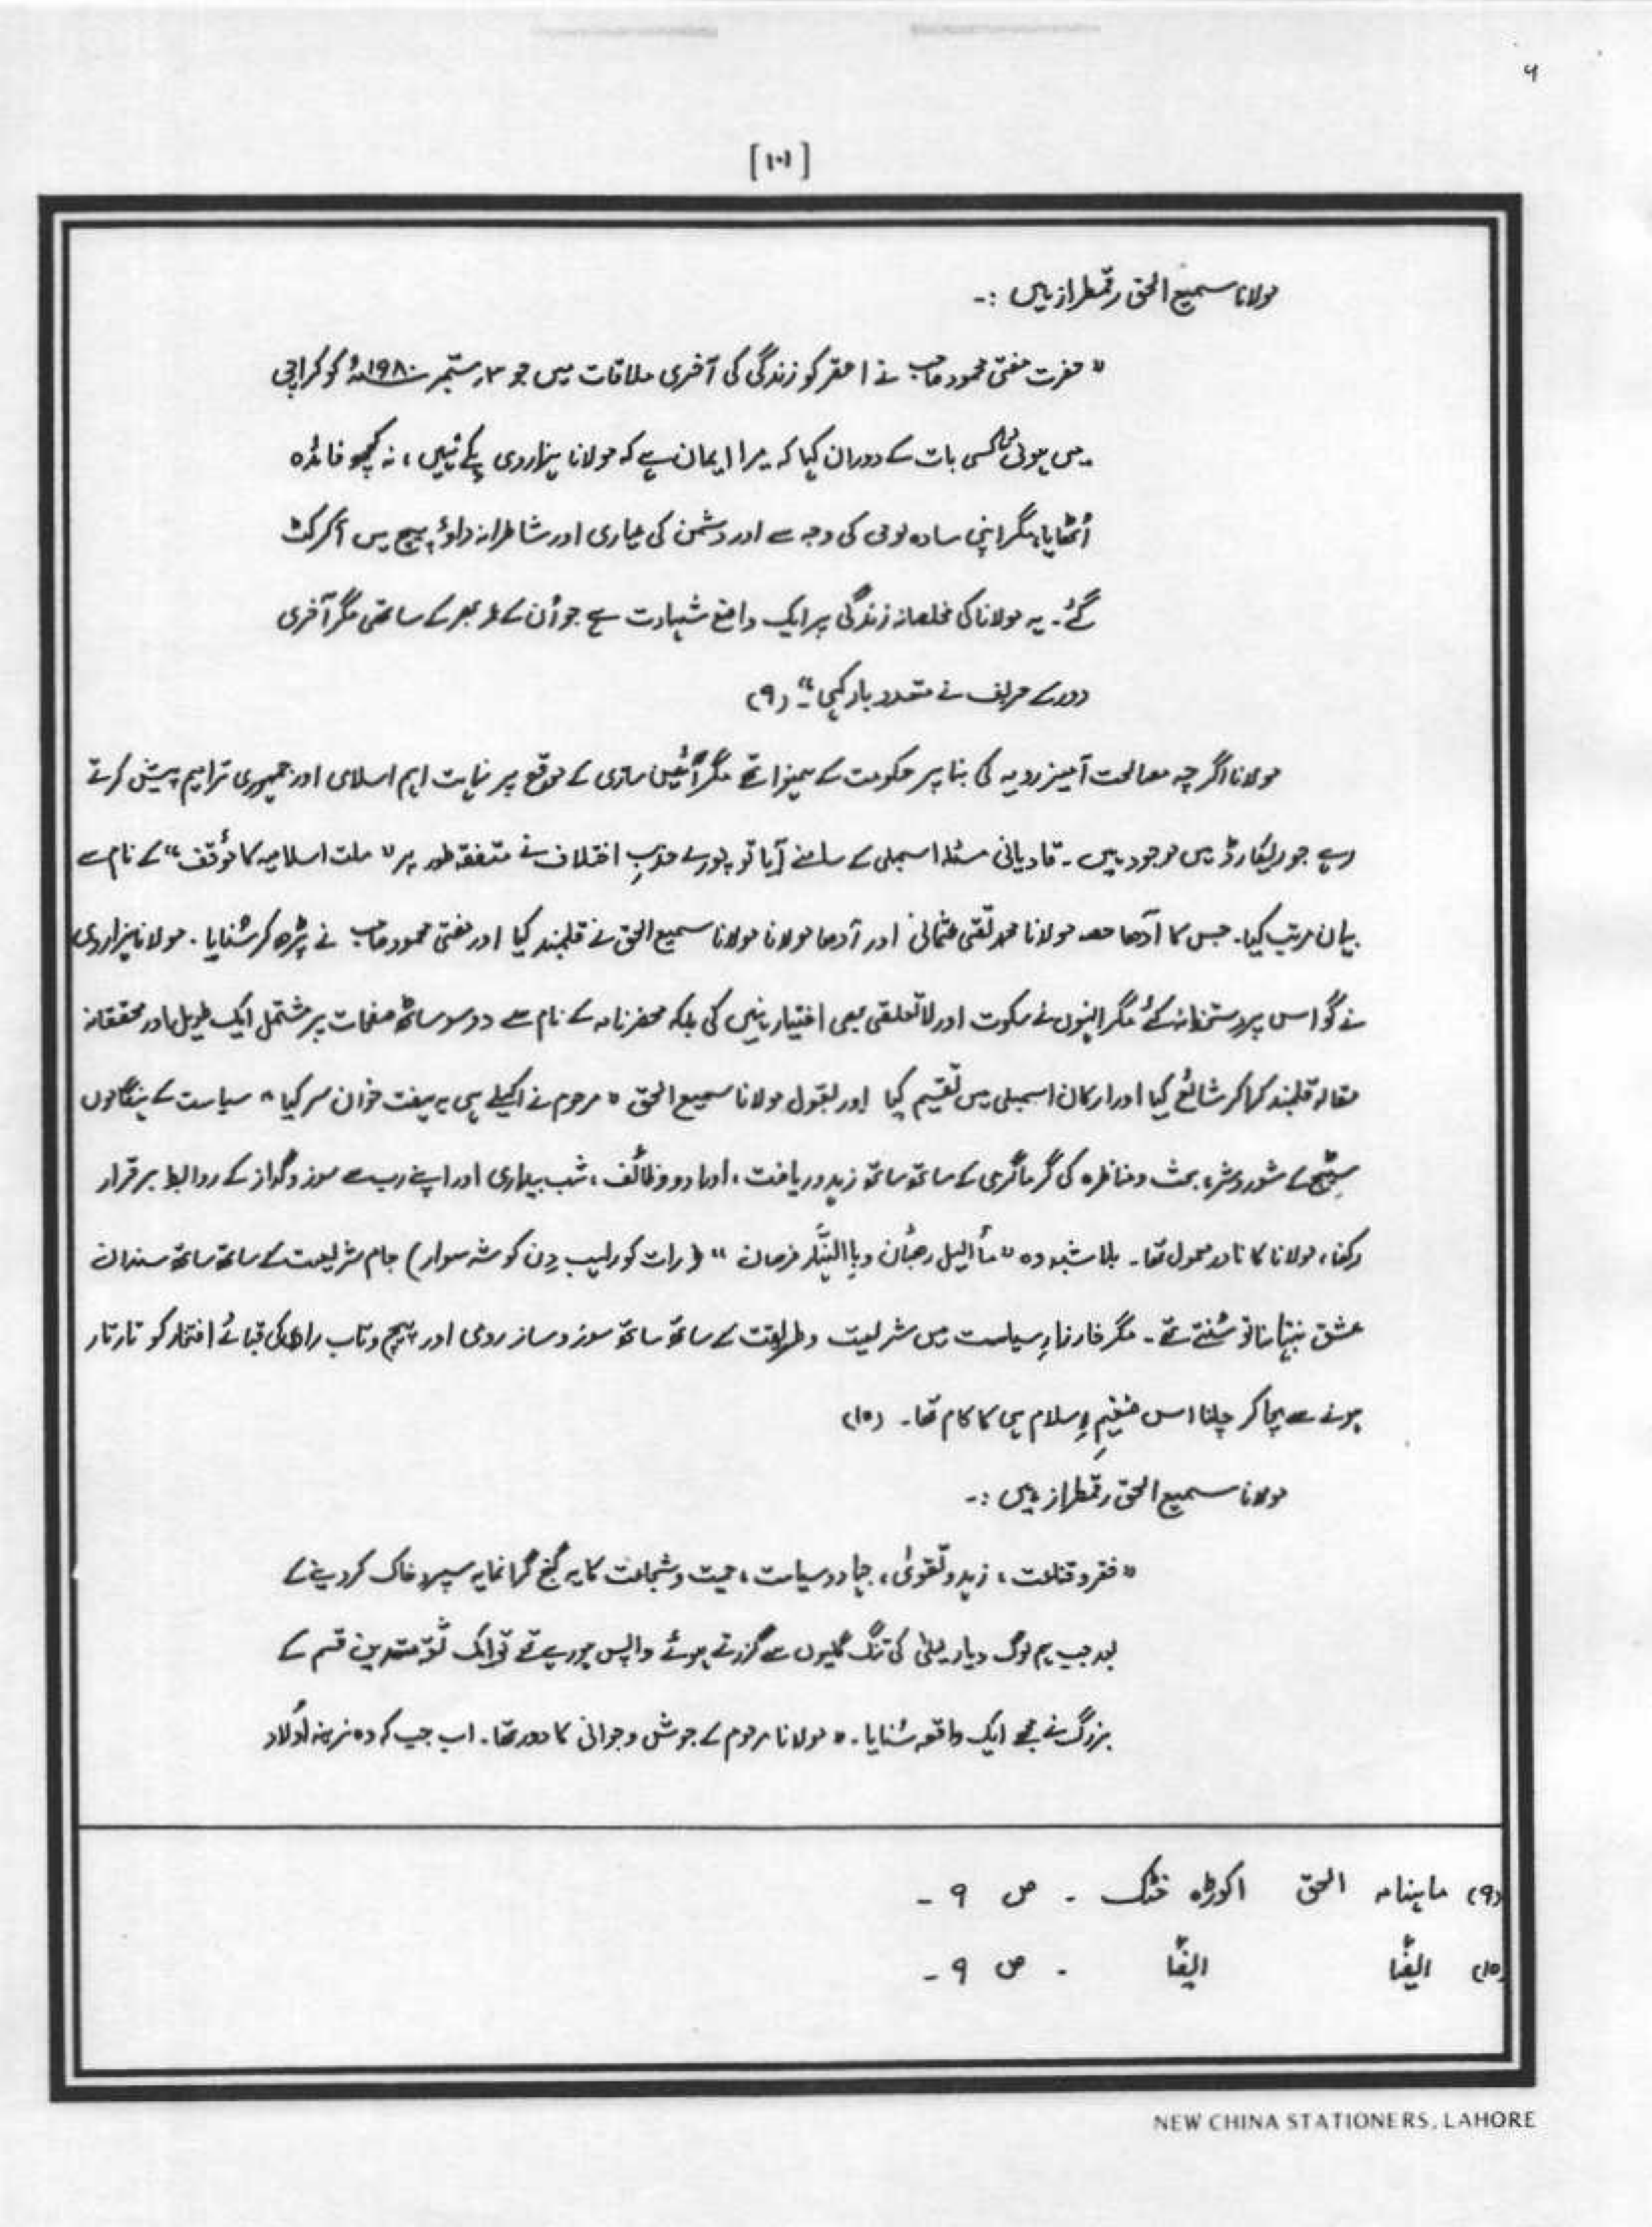 ۹
[۱۰۱]
مولانا سمیع الحق رقمطراز ہیں :-
" حضرت مفتی محمود صاحب نے احقر کو زندگی کی آخری ملاقات میں جو ۳؍ ستمبر ۱۹۸۰ء کو کراچی
میں ہوئی کسی بات کے دوران کہا کہ میرا ایمان ہے کہ مولانا ہزاروی بِکے نہیں ، نہ کچھ فائدہ
اُٹھایا، مگر اپنی سادہ لوحی کی وجہ سے اور دشمن کی عیاری اور شاطرانہ داؤ پیچ میں آکر کٹ
گئے۔ یہ مولانا کی مخلصانہ زندگی پر ایک واضح شہادت ہے جو اُن کے عمر بھر کے ساتھی مگر آخری
دور کے حریف نے متعدد بار کہی "۔ (۹)
مولانا اگرچہ مصالحت آمیز رویہ کی بنا پر حکومت کے ہمنوا تھے مگر آئین سازی کے موقع پر نہایت اہم اسلامی اور جمہوری ترامیم پیش کرتے
رہے جو ریکارڈ میں موجود ہیں ۔ قادیانی مسئلہ اسمبلی کے سامنے آیا تو پورے حزبِ اختلاف نے متفقہ طور پر " ملت اسلامیہ کا مؤقف " کے نام سے
بیان مرتب کیا۔ جس کا آدھا حصہ مولانا محمد تقی عثمانی اور آدھا مولانا مولانا سمیع الحق نے قلمبند کیا اور مفتی محمود صاحب نے پڑھ کر سُنایا ۔ مولانا ہزاروی
نے گو اس پر دستخط نہ کئے مگر انہوں نے سکوت اور لاتعلقی بھی اختیار نہیں کی بلکہ محضر نامہ کے نام سے دو سو ساٹھ صفحات پر مشتمل ایک طویل اور محققانہ
مقالہ قلمبند کرا کر شائع کیا اور ارکان اسمبلی میں تقسیم کیا اور بقول مولانا سمیع الحق " مرحوم نے اکیلے ہی یہ ہفت خوان سر کیا " سیاست کے ہنگاموں
سٹیج کے شور و شر، بحث و مناظرہ کی گرما گرمی کے ساتھ ساتھ زہد و ریاضت ، اوراد و وظائف ، شب بیداری اور اپنے رب سے سوز و گداز کے روابط برقرار
رکھنا ، مولانا کا نادر معمول تھا۔ بلا شبہ وہ " باالیل رھبان و باالنہار فرسان " (رات کو راہب دِن کو شہسوار) جام شریعت کے ساتھ ساتھ سندان
عشق نبھانا تو سُنتے تھے ۔ مگر خارزارِ سیاست میں شریعت و طریقت کے ساتھ ساتھ سوز و ساز رومی اور پیچ و تاب رازی کی قبائے افتخار کو تار تار
ہونے سے بچا کر چلنا اس ضیغمِ اِسلام ہی کا کام تھا۔ (۱۰)
مولانا سمیع الحق رقمطراز ہیں :-
" فقر و قناعت ، زہد و تقویٰ ، جہاد و سیاست ، حمیت و شجاعت کا یہ گنج گرانمایہ سپرد خاک کر دینے کے
بعد جب ہم لوگ دیار کی تنگ گلیوں سے گزرتے ہوئے واپس ہو رہے تھے تو ایک ثقہ متدین قسم کے
بزرگ نے مجھے ایک واقعہ سُنایا ۔ " مولانا مرحوم کے جوش و جوانی کا دور تھا ۔ اب جب کہ وہ نرینہ اَولاد
(۹) ماہنامہ الحق اکوڑہ خٹک ۔ ص ۹ -
(۱۰) ایضًا ایضًا ۔ ص ۹ -
NEW CHINA STATIONERS, LAHORE